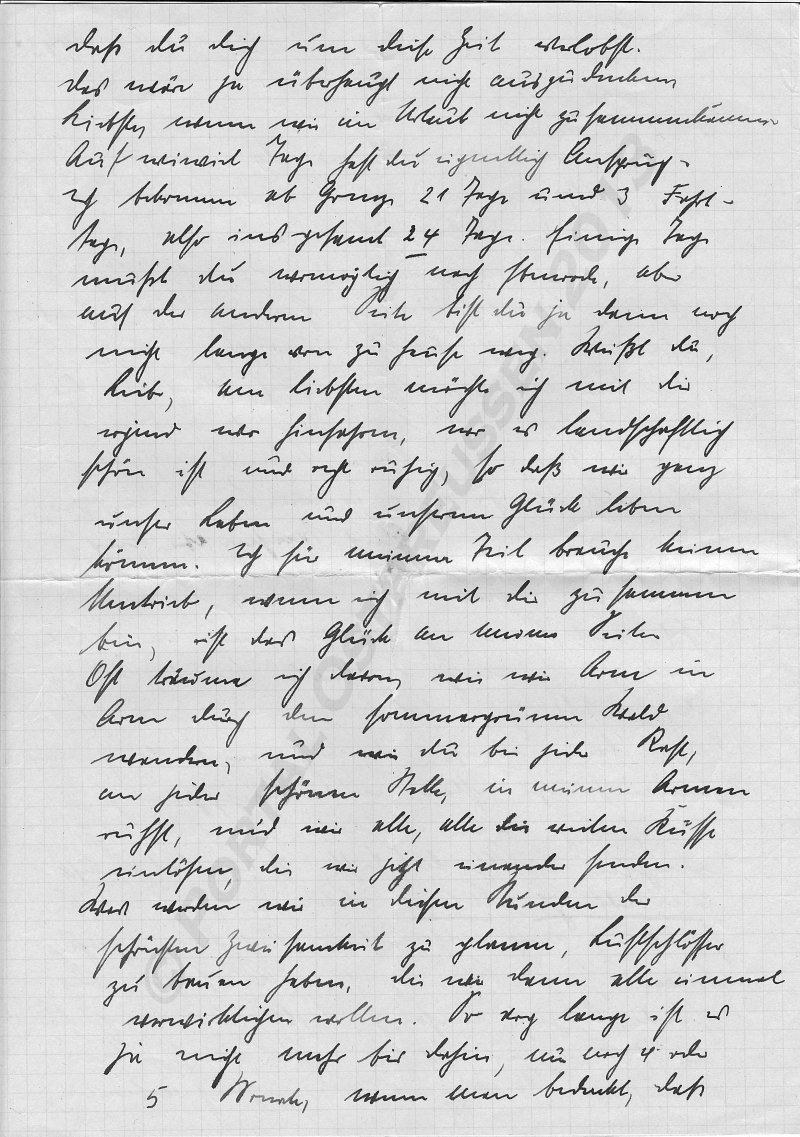 daß du dich um diese Zeit verlobst.
Das wär ja überhaupt nicht auszudenken
Liebster, wenn wir im Urlaub nicht zusammenkämen
Auf wieviel Tage hast du eigentlich Anspruch.
Ich bekomme ab Grenze 21 Tage und 3 Fahrt-
tage, also insgesamt 24 Tage. Einige Tage
mußt du womöglich nach, aber
auf der anderen Seite bist du ja dann noch
nicht lange von zu Hause weg. Weißt du,
Liebe, am liebsten möchte ich mit dir
irgend wo hinfahren, wo es landschaftlich
schön ist und recht ruhig, so daß wir ganz
unser Leben und unserem Glück leben
können. Ich für meinen Teil brauche keinen
Umtrieb, wenn ich mit dir zusammen
bin, ist das Glück an meiner Seite.
Oft träume ich davon, wie wir Arm in
Arm durch den sommergrünen Wald
wandern, und wie du bei jeder Rast,
an jeder schönen Stelle, in meinen Armen
ruhst, und wir alle, alle die vielen Küsse
einlösen, die wir jetzt einander senden.
Was werden wir in diesen Stunden der
schönsten Zweisamkeit zu planen, Luftschlösser
zu bauen haben, die wir dann alle einmal
verwirklichen wollen. So arg lange ist es
ja nicht mehr bis dahin, nur noch 4 oder
5 Monate, wenn man bedenkt, daß